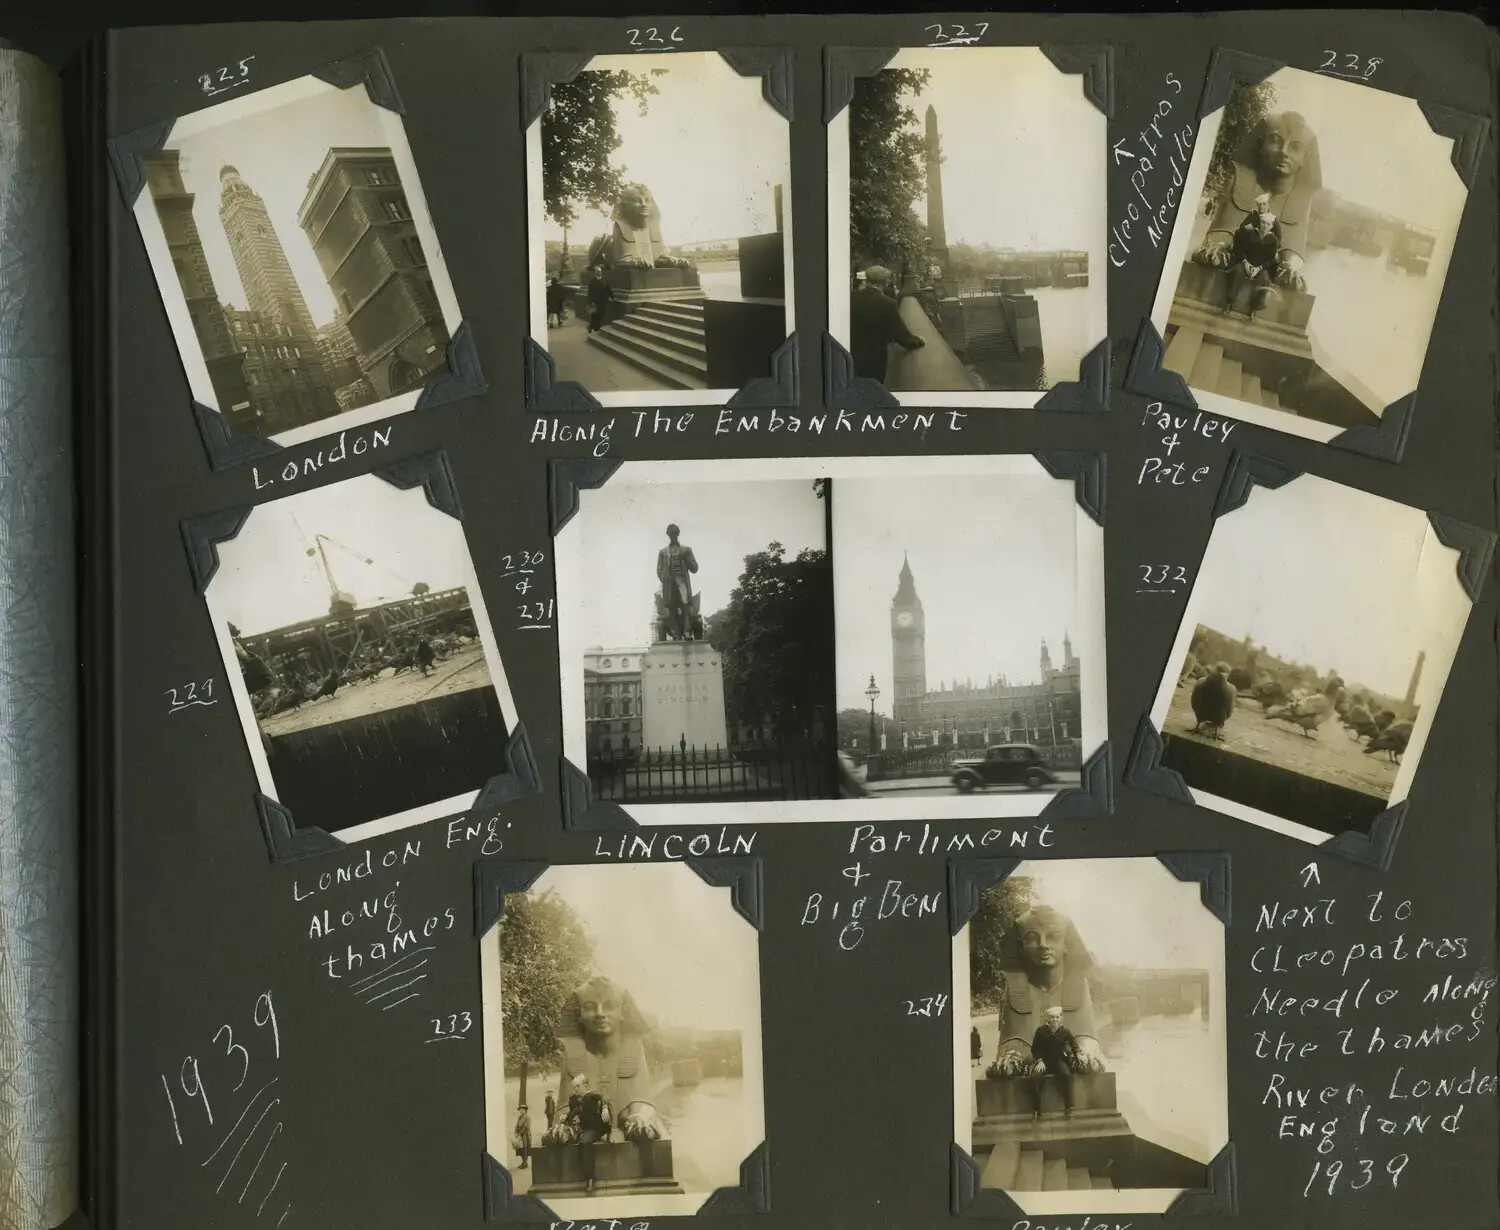 225
226
227
228
Cleopatros
Needle
London
Along The Embankment
Pauley
&
Pete
229
230
&
231
232
ABRAHAM
LINCOLN
London Eng.
Along
thames
LINCOLN
Parliment
&
Big Ben
Next to
Cleopatras
Needle Along
the thames
River London
England
1939
1939
233
234
Pete
Pauley